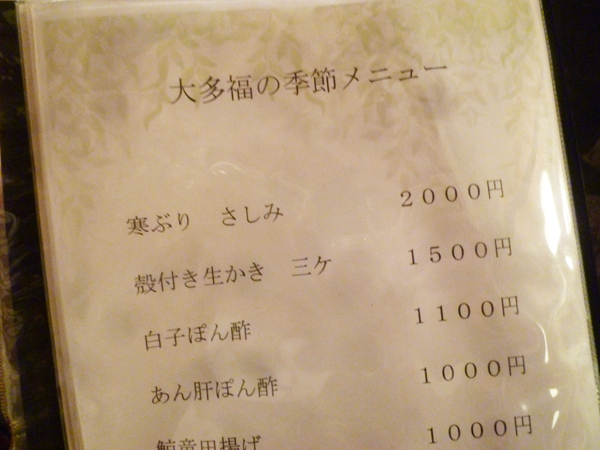 大多福の季節メニュー
寒ぶり　さしみ　２０００円
殻付き生かき　三ケ　１５００円
白子ぽん酢　１１００円
あん肝ぽん酢　１０００円
鯨竜田揚げ　１０００円